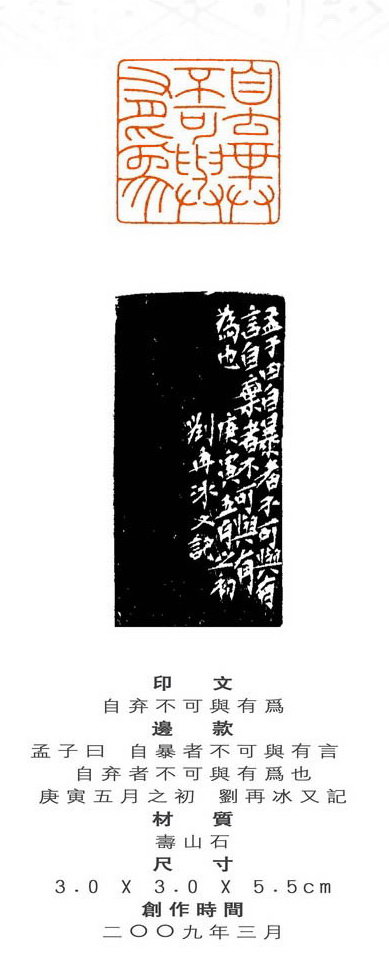 自弃不可與有爲
孟子曰自暴者不可與有
言自棄者不可與有
為也 庚寅五月之初
劉再冰又記
印 文
自弃不可與有爲
邊 款
孟子曰 自暴者不可與有言
自弃者不可與有爲也
庚寅五月之初 劉再冰又記
材 質
壽山石
尺 寸
3.0 X 3.0 X 5.5cm
創作時間
二〇〇九年三月